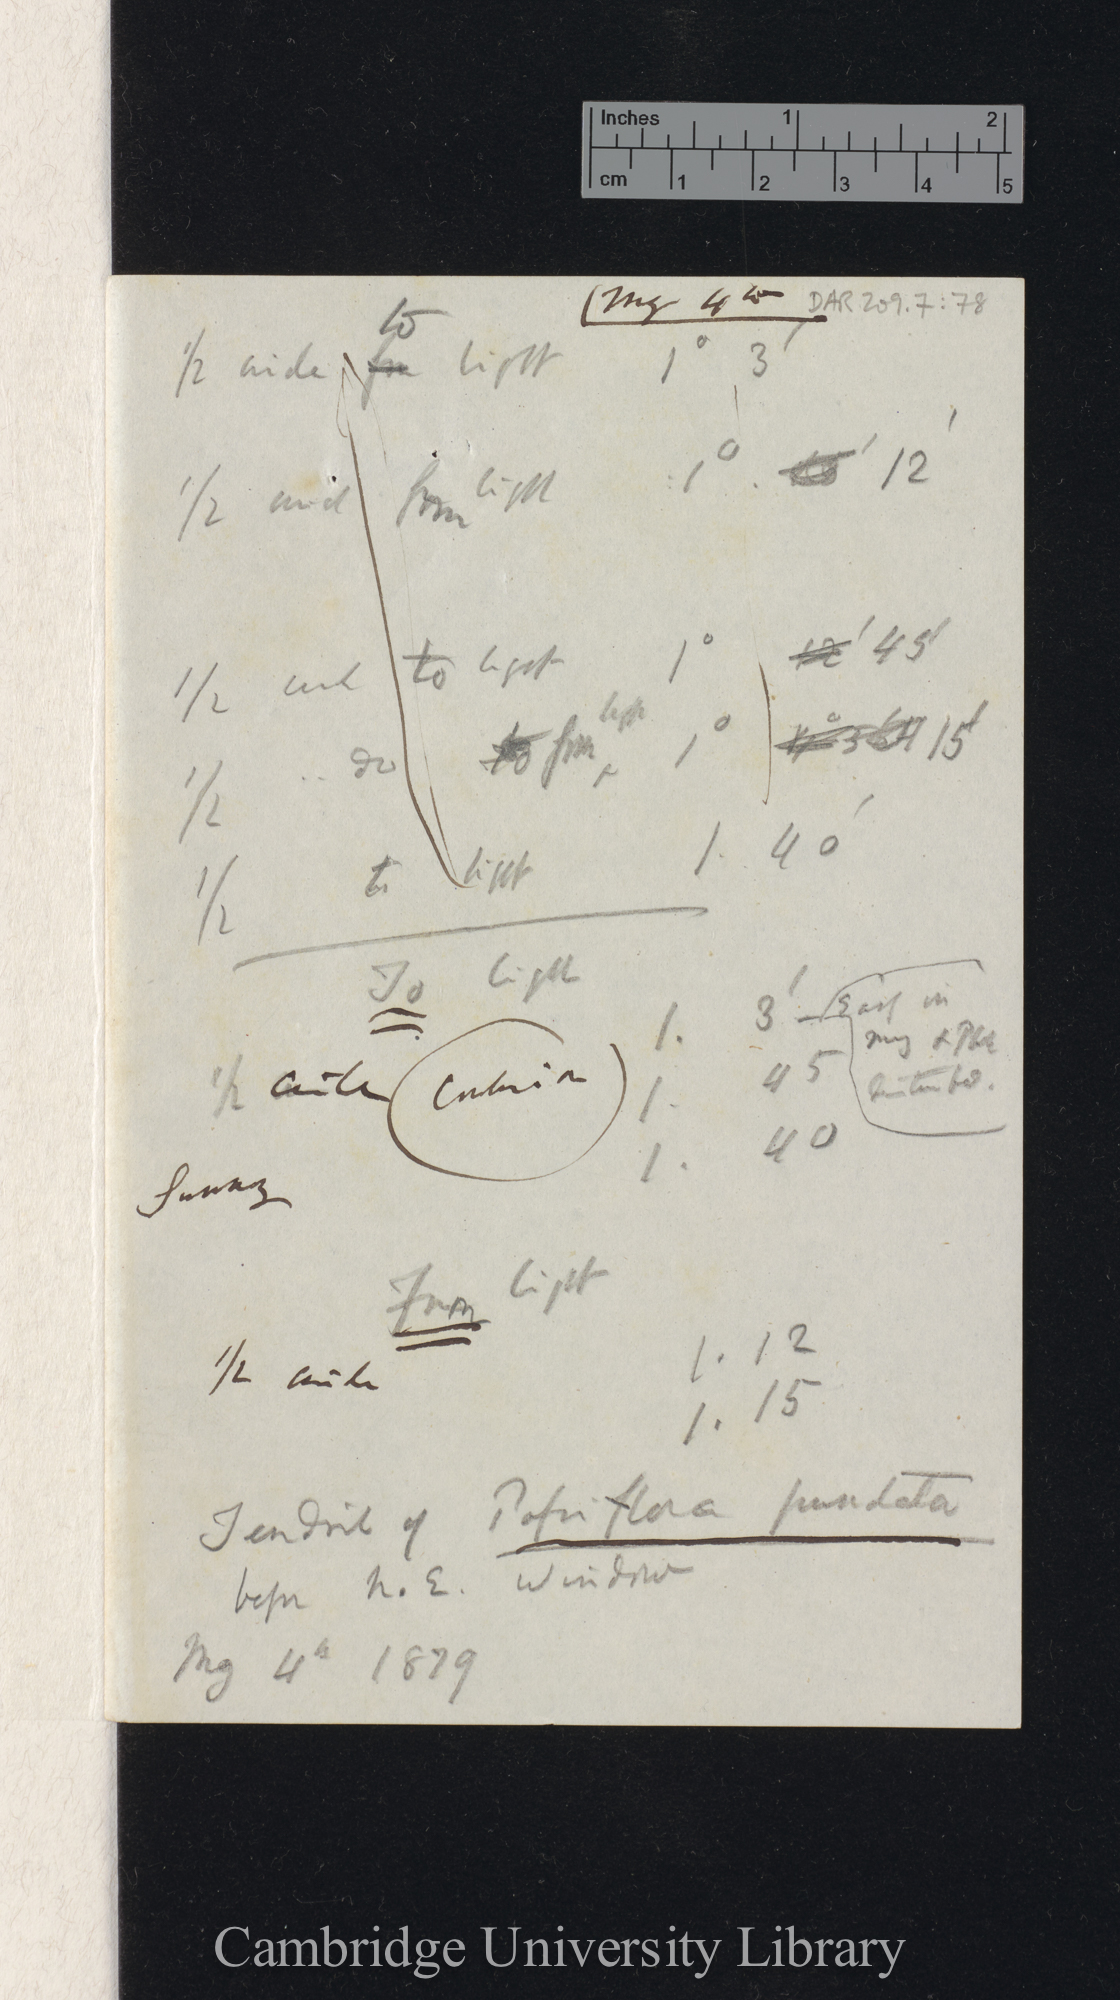 Inches 1 2
cm 1 2 3 4 5
(May 4th DAR 209.7:78
to
1/2 circle from light 1° 3'
1/2 circ from light 1° 12'
1/2 circle to light 1° 12' 45'
1/2 .. do to from light 1° 15'
1/2 to light 1. 40'
To light
1. 3' Early in
mg & Plt
disturbed.
1/2 circle 1. 45
1. 40
Sunny
From light
1/2 circle 1. 12
1. 15
Tendril of Passiflora punctata
before N.E. window
May 4th 1879
Cambridge University Library